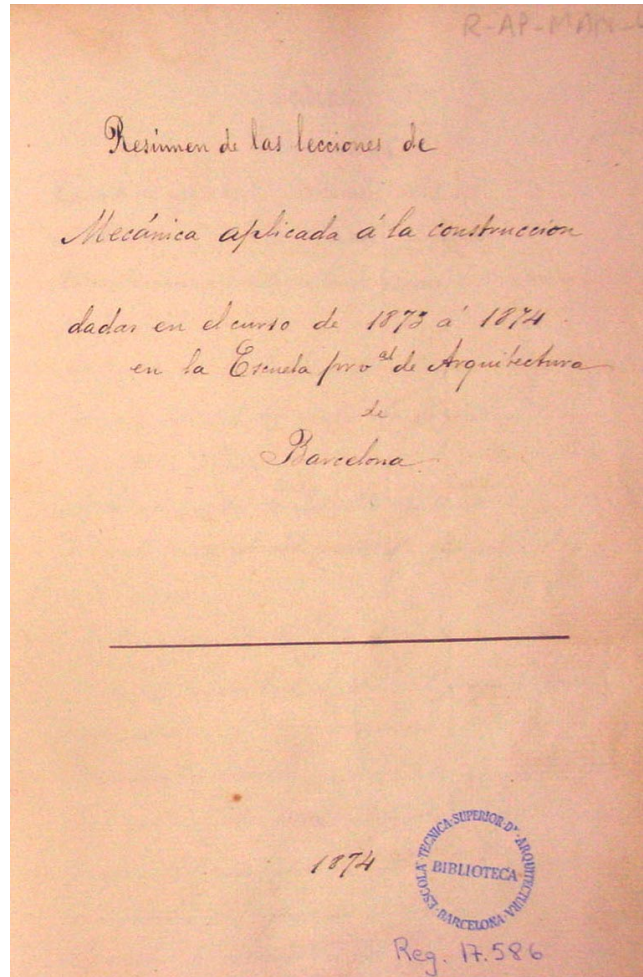 R-AP-MAN-
Resúmen de las lecciones de
Mecánica aplicada á la construccion
dadas en el curso de 1873 á 1874.
en la Escuela pro^al de Arquitectura
de
Barcelona
1874
ESCOLA TÈCNICA SUPERIOR D' ARQUITECTURA
BIBLIOTECA
BARCELONA
Reg. 17.586